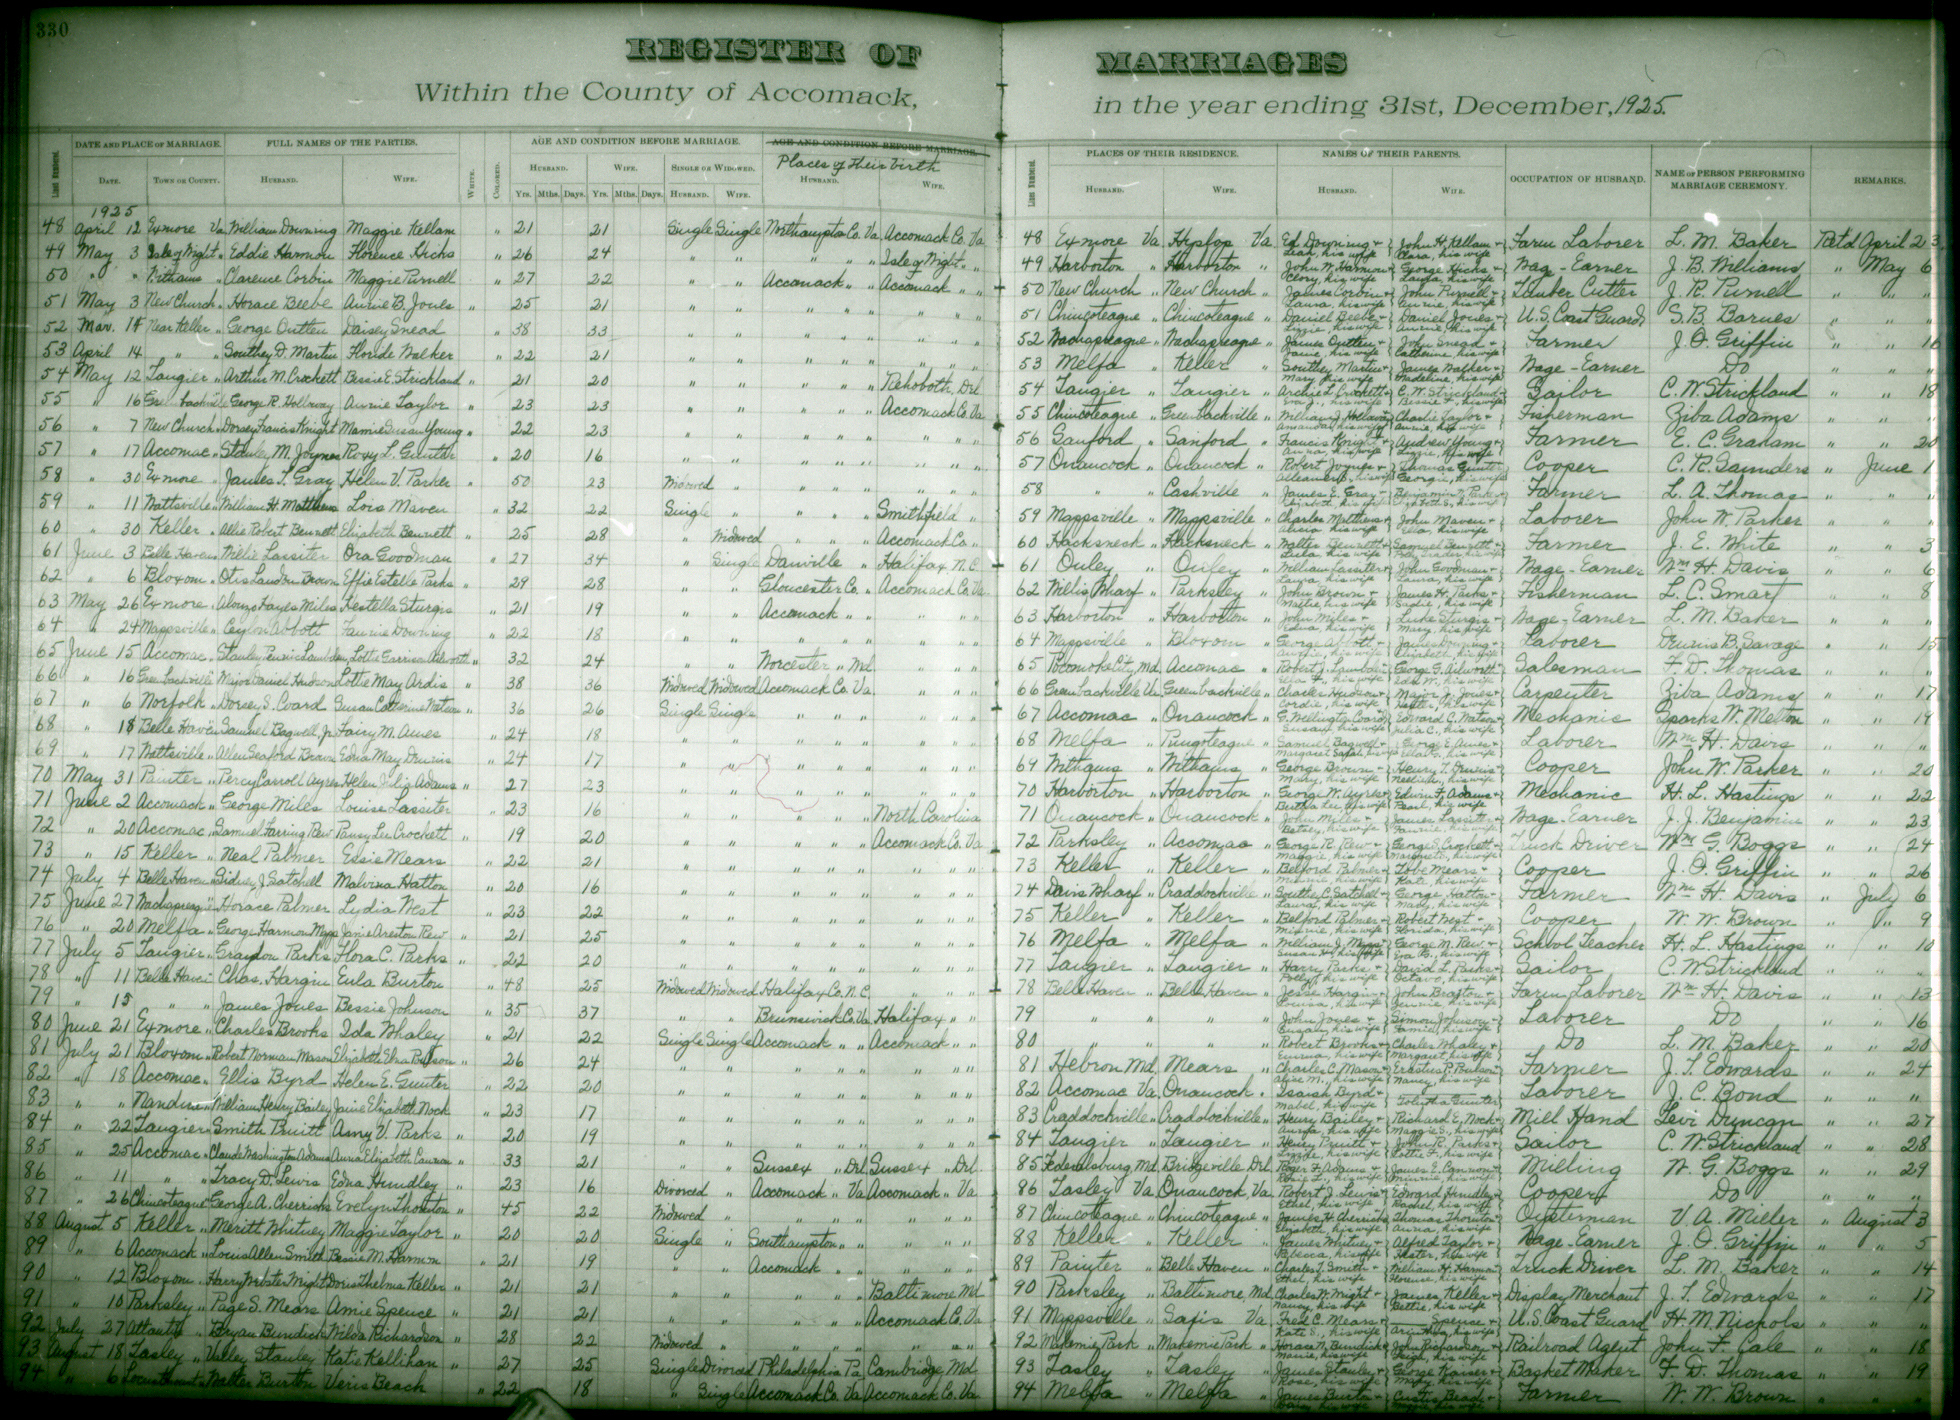 330
REGISTER OF MARRIAGES
Within the County of Accomack, in the year ending 31st, December, 1925.
Line Numbered. DATE AND PLACE OF MARRIAGE. FULL NAMES OF THE PARTIES. WHITE. COLORED. AGE AND CONDITION BEFORE MARRIAGE. AGE AND CONDITION BEFORE MARRIAGE. Line Numbered. PLACES OF THEIR RESIDENCE. NAMES OF THEIR PARENTS. OCCUPATION OF HUSBAND. NAME OF PERSON PERFORMING MARRIAGE CEREMONY. REMARKS.
Places of Their birth
DATE. TOWN OR COUNTY. HUSBAND. WIFE. HUSBAND. WIFE. SINGLE OR WIDOWED. HUSBAND. WIFE. HUSBAND. WIFE. HUSBAND. WIFE.
Yrs. Mths. Days. Yrs. Mths. Days. HUSBAND. WIFE.
1925
48 April 12 Exmore Va William Downing Maggie Kellam " 21 21 Single Single Northampton Co. Va Accomack Co. Va 48 Exmore Va Hyslop Va Ed Downing + Leah, his wife John H. Kellam + Clara, his wife Farm Laborer L. M. Baker Retd April 23
49 May 3 Isle of Wight " Eddie Harmon Florence Hicks " 26 24 " " " " " Isle of Wight " " 49 Harborton " Harborton " John W. Harmon + George Hicks + Wage-Earner J. B. Williams " May 6
50 " " Withams " Clarence Corbin Maggie Purnell " 27 22 " " Accomack " " Accomack " " 50 New Church " New Church " James Corbin + Laura, his wife John Purnell + Annie, his wife Timber Cutter J. R. Purnell " " "
51 May 3 New Church " Horace Beebe Annie B. Jones " 25 21 " " " " " " " " 51 Chincoteague " Chincoteague " Daniel Beebe + Lizzie, his wife Daniel Jones + Annie, his wife U.S. Coast Guard S. B. Barnes " " "
52 Mar. 14 Near Keller " George Outten Daisey Snead " 38 33 " " " " " " " " 52 Wachapreague " Wachapreague " James Outten + Janie, his wife John Snead + Catherine, his wife Farmer J. O. Griffin " " 16
53 April 14 " " Southey D. Martin Floride Walker " 22 21 " " " " " " " " 53 Melfa " Keller " Southey Martin + Mary, his wife James Walker + Madeline, his wife Wage-Earner Do " " "
54 May 12 Tangier " Arthur M. Crockett Bessie E. Strickland " 21 20 " " " " " Rehoboth, Del 54 Tangier " Tangier " Archie L. Crockett + C. W. Strickland + Bessie, his wife Sailor C. W. Strickland " " 18
55 " 16 Greenbackville George R. Holloway Annie Taylor " 23 23 " " " " " Accomack Co. Va 55 Chincoteague " Greenbackville " William J. Holloway Amanda, his wife Charlie Taylor + Annie, his wife Fisherman Ziba Adams " " "
56 " 7 New Church " Dorsey Francis Knight Mamie Susan Young " 22 23 " " " " " " " " 56 Sanford " Sanford " Francis Knight + Anna, his wife Andrew Young + Lizzie, his wife Farmer E. C. Graham " " 20
57 " 17 Accomac " Stanley M. Joynes Roxy L. Gunter " 20 16 " " " " " " " " 57 Onancock " Onancock " Robert Joynes + his wife Thomas Gunter Georgie, his wife Cooper C. R. Saunders " June 1
58 " 30 Exmore " James T. Gray Helen V. Parker " 50 23 Widowed " " " " " " " 58 " " Cashville " James E. Gray + Elizabeth, his wife Benjamin T. Parker + Elizabeth S., his wife Farmer L. A. Thomas " " "
59 " 11 Wattsville " William H. Matthews Lois Maven " 32 22 Single " " " " Smithfield " 59 Mappsville " Mappsville " Charles Matthews + his wife John Maven + Ella, his wife Laborer John W. Parker " " "
60 " 30 Keller " Allie Robert Bennett Elizabeth Bennett " 25 28 " Widowed " " " Accomack Co. " 60 Hacksneck " Hacksneck " Walter Bennett + his wife Samuel Bennett + his wife Farmer J. E. White " " 3
61 June 3 Belle Haven " Willie Lassiter Ora Goodman " 27 34 " Single Danville " Halifax N.C. 61 Onley " Onley " William Lassiter + Laura, his wife John Goodman + Laura, his wife Wage-Earner Wm H. Davis " " 6
62 " 6 Bloxom " Otis Landon Brown Effie Estelle Parks " 29 28 " " Gloucester Co. " Accomack Co. Va 62 Willis Wharf " Parksley " John Brown + Mattie, his wife James H. Parks + Sadie, his wife Fisherman L. C. Smart " " 8
63 May 26 Exmore " Alonzo Hayes Miles Hestella Sturgis " 21 19 " " Accomack " " " " " 63 Harborton " Harborton " John Miles + Edna, his wife Luke Sturgis + Mary, his wife Wage-Earner L. M. Baker " " "
64 " 24 Mappsville " Ceylon Abbott Fannie Downing " 22 18 " " " " " " " " 64 Mappsville " Bloxom " George Abbott + his wife James Downing + Elizabeth, his wife Laborer Dennis B. Savage " " 15
65 June 15 Accomac " Stanley Lambden Lottie Garrison Ailworth " 32 24 " " Worcester " Md " " " 65 Pocomoke City, Md Accomac " Robert J. Lambden + Ella F., his wife George G. Ailworth + his wife Salesman F. D. Thomas " " "
66 " 16 Greenbackville Major Daniel Hudson Lottie May Ardis " 38 36 Widowed Widowed Accomack Co. Va " " " 66 Greenbackville Va Greenbackville " Charles Hudson + Cordie, his wife Major J. Jones + Hester, his wife Carpenter Ziba Adams " " 17
67 " 6 Norfolk " Dorsey S. Coard Susan Catherine Watson " 36 26 Single Single " " " " " " 67 Accomac " Onancock " G. Wellington Coard Susan, his wife Edward C. Watson + Julia C., his wife Mechanic Sparks W. Melton " " 19
68 " 18 Belle Haven " Samuel Bagwell, Jr Fairy M. Ames " 24 18 " " " " " " " " 68 Melfa " Pungoteague " Samuel Bagwell + Margaret Sarah, his wife George E. Ames + his wife Laborer Wm H. Davis " " "
69 " 17 Wattsville " Allen Seaford Brown Edna May Dennis " 24 17 " " " " " " " " 69 Withams " Withams " George Brown + Mary, his wife Henry T. Dennis + his wife Cooper John W. Parker " " 20
70 May 31 Painter " Percy Carroll Ayres Helen Julia Adams " 27 23 " " " " " " " " 70 Harborton " Harborton " George W. Ayres + Bertha Lee, his wife Edwin F. Adams + Pearl, his wife Mechanic H. L. Hastings " " 22
71 June 2 Accomack " George Mills Louise Lassiter " 23 16 " " " " " North Carolina 71 Onancock " Onancock " John Mills + Betsey, his wife James Lassiter + Fannie, his wife Wage-Earner J. J. Benjamin " " 23
72 " 20 Accomac " Samuel Farring Rew Pansy Lee Crockett " 19 20 " " " " " Accomack Co. Va 72 Parksley " Accomac " George R. Rew + Maggie, his wife George S. Crockett + Margaret S., his wife Truck Driver Wm G. Boggs " " 24
73 " 15 Keller " Neal Palmer Essie Mears " 22 21 " " " " " " " " 73 Keller " Keller " Belford Palmer + Minnie, his wife Tobe Mears + Kate, his wife Cooper J. O. Griffin " " 26
74 July 4 Belle Haven " Sidney J. Satchell Malvina Hatton " 20 16 " " " " " " " " 74 Davis Wharf " Craddockville " Southey C. Satchell + Sarah, his wife George Hatton + Mary, his wife Farmer Wm H. Davis " July 6
75 June 27 Wachapreague " Horace Palmer Lydia West " 23 22 " " " " " " " " 75 Keller " Keller " Belford Palmer + Minnie, his wife Robert West + Florida, his wife Cooper W. W. Brown " " 9
76 " 20 Melfa " George Harmon Mapp Janie Areston Rew " 21 25 " " " " " " " " 76 Melfa " Melfa " William J. Mapp + Susan H., his wife George N. Rew + Eva C., his wife School Teacher H. L. Hastings " " 10
77 July 5 Tangier " Graydon Parks Flora C. Parks " 22 20 " " " " " " " " 77 Tangier " Tangier " Harry Parks + Polly, his wife David L. Parks + Octavia, his wife Sailor C. W. Strickland " " "
78 " 11 Belle Haven Chas. Hargin Eula Burton " 48 25 Widowed Widowed Halifax Co. N.C. " " " 78 Belle Haven " Belle Haven " Jesse Hargin + Louisa, his wife John Braxton + Jennie, his wife Farm Laborer Wm H. Davis " " 13
79 " 15 " " James Jones Bessie Johnson " 35 37 " " Brunswick Co. Va Halifax " " 79 " " " " John Jones + Susan, his wife Simon Johnson + Jamie, his wife Laborer Do " " 16
80 June 21 Exmore " Charles Brooks Ida Whaley " 21 22 Single Single Accomack " " Accomack " " 80 " " " " Robert Brooks + Emma, his wife Charles Whaley + Margaret, his wife Do L. M. Baker " " 20
81 July 21 Bloxom " Robert Norman Mason Elizabeth Edna Poulson " 26 24 " " " " " " " " 81 Hebron Md. Mears " Charles C. Mason + Alice M., his wife Erastus P. Poulson + Nancy, his wife Farmer J. T. Edwards " " 24
82 " 18 Accomac " Ellis Byrd Helen E. Gunter " 22 20 " " " " " " " " 82 Accomac Va Onancock " Isaiah Byrd + Mabel, his wife Tolitha Gunter Laborer J. C. Bond " " "
83 " " Nandua " William Henry Bailey Janie Elizabeth Nock " 23 17 " " " " " " " " 83 Craddockville " Craddockville " Henry Bailey + Annie, his wife Richard E. Nock + Maggie S., his wife Mill Hand Levi Duncan " " 27
84 " 22 Tangier " Smith Pruitt Amy V. Parks " 20 19 " " " " " " " " 84 Tangier " Tangier " Henry Pruitt + Lizzie, his wife John R. Parks + Lottie F., his wife Sailor C. W. Strickland " " 28
85 " 25 Accomac " Claude Washington Adams Anna Elizabeth Cannon " 33 21 " " Sussex " Del Sussex " Del. 85 Federalsburg, Md. Bridgeville Del. Roger F. Adams + Rosie L., his wife James E. Cannon + Minnie, his wife Milling W. G. Boggs " " 29
86 " 11 " " Tracy D. Lewis Edna Hundley " 23 16 Divorced " Accomack " Va Accomack " Va 86 Tasley Va Onancock, Va Robert J. Lewis + Ethel, his wife Edward Hundley + Rachel, his wife Cooper Do " " "
87 " 26 Chincoteague " George A. Cherrick Evelyn Thornton " 45 22 Widowed " " " " " " " 87 Chincoteague " Chincoteague " James H. Cherrick Elizabeth, his wife Thomas Thornton + Anna, his wife Oysterman V. A. Miller " August 3
88 August 5 Keller " Meritt Whitney Maggie Taylor " 20 20 Single " Southampton " " " " " 88 Keller " Keller " James Whitney + Rebecca, his wife Alfred Taylor + Hester, his wife Wage-Earner J. O. Griffin " " 5
89 " 6 Accomack " Louis Allen Smith Bessie M. Harmon " 21 19 " " Accomack " " " " " 89 Painter " Belle Haven " Charles T. Smith + Ethel, his wife William H. Harmon Florence, his wife Truck Driver L. M. Baker " " 14
90 " 12 Bloxom " Harry Webster Wright Doris Thelma Keller " 21 21 " " " " " Baltimore, Md 90 Parksley " Baltimore, Md. Charles W. Wright + Nancy, his wife James Keller + Bettie, his wife Display Merchant J. T. Edwards " " 17
91 " 10 Parksley " Page S. Mears Amie Spence " 21 21 " " " " " Accomack Co. Va 91 Mappsville " Saxis Va. Fred C. Mears + Kate S., his wife Spence + his wife U.S. Coast Guard H. M. Nichols " " "
92 July 27 Atlantic " Bryan Bundick Wilda Richardson " 28 22 Widowed " " " " " " " 92 Makemie Park " Makemie Park " Horace N. Bundick + Marie, his wife John Richardson + his wife Railroad Agent John F. Cale " " 18
93 August 18 Tasley " Valley Stanley Katie Kellihan " 27 25 Single Divorced Philadelphia Pa Cambridge Md 93 Tasley " Tasley " James Stanley + Rose, his wife George Kaiser + Mary, his wife Basket Maker F. D. Thomas " " 19
94 " 6 Locustmount " Walter Burton Veris Beach " 22 18 " Single Accomack Co. Va Accomack Co. Va 94 Melfa " Melfa " James Burton + his wife Custis Beach + his wife Farmer W. W. Brown " " "